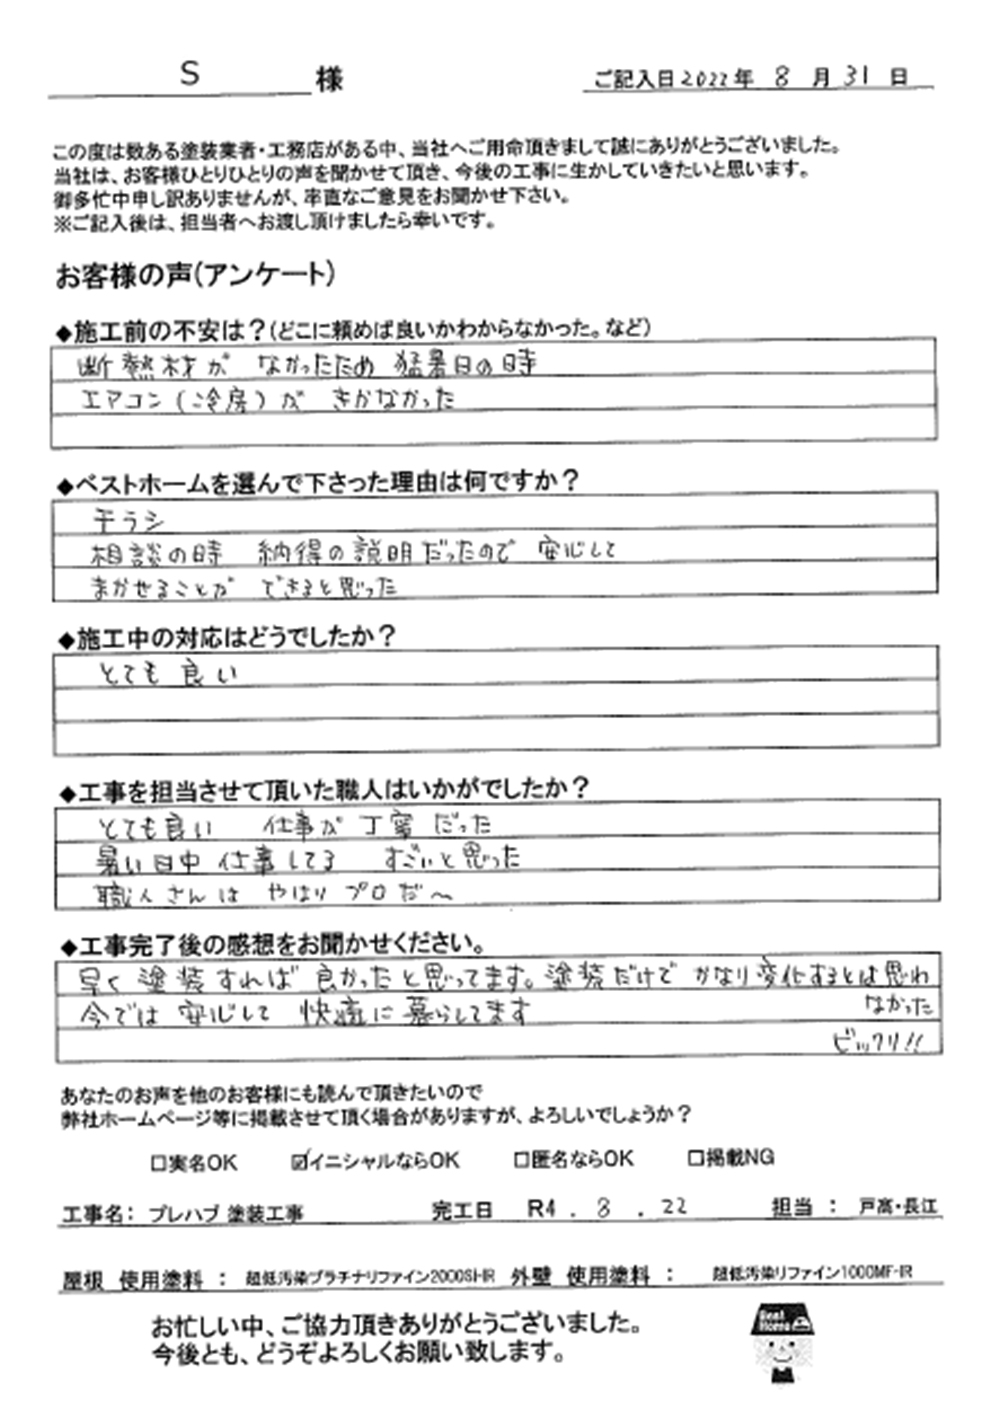 S 様
ご記入日2022年 8 月 31 日
この度は数ある塗装業者・工務店がある中、当社へご用命頂きまして誠にありがとうございました。
当社は、お客様ひとりひとりの声を聞かせて頂き、今後の工事に生かしていきたいと思います。
御多忙中申し訳ありませんが、率直なご意見をお聞かせ下さい。
※ご記入後は、担当者へお渡し頂けましたら幸いです。
お客様の声(アンケート)
◆施工前の不安は?(どこに頼めば良いかわからなかった。など)
断熱材が なかったため 猛暑日の時
エアコン(冷房)が きかなかった
◆ベストホームを選んで下さった理由は何ですか?
チラシ
相談の時 納得の説明だったので 安心して
まかせることが できると思った
◆施工中の対応はどうでしたか?
とても 良い
◆工事を担当させて頂いた職人はいかがでしたか?
とても良い 仕事が 丁寧 だった
暑い日中 仕事してる すごいと思った
職人さんは やはり プロだ〜
◆工事完了後の感想をお聞かせください。
早く 塗装すれば 良かったと思ってます。塗装だけで かなり変化するとは思わ
なかった
今では 安心して 快適に暮らしてます
ビックリ!!
あなたのお声を他のお客様にも読んで頂きたいので
弊社ホームページ等に掲載させて頂く場合がありますが、よろしいでしょうか?
□実名OK ☑イニシャルならOK □匿名ならOK □掲載NG
工事名: プレハブ 塗装工事 完工日 R4 . 8 . 22 担当 : 戸髙・長江
屋根 使用塗料 : 超低汚染プラチナリファイン2000SI-IR 外壁 使用塗料 : 超低汚染リファイン1000MF-IR
お忙しい中、ご協力頂きありがとうございました。
今後とも、どうぞよろしくお願い致します。
Best
Home